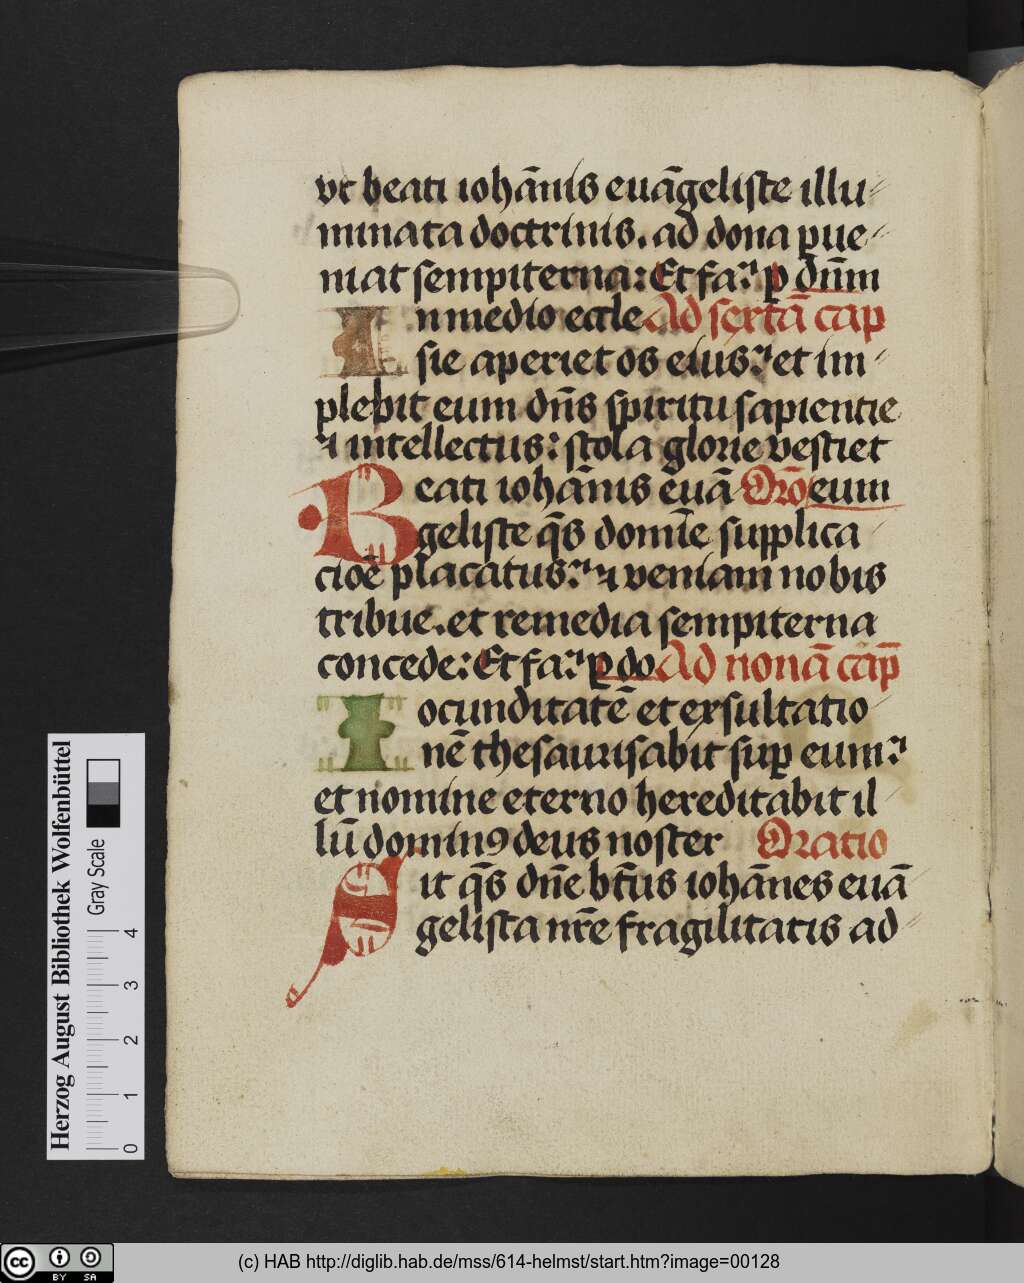 vt beati iohāīs euāgeliste illu
minata doctrinis. ad dona pue
niat sempiterna: Et fa. p dūm
In medio eccle Ad sextā cap
sie aperiet os eius: et im
plebit eum dn̄s spiritu sapientie
⁊ intellectus: stola glorie vestiet
Beati iohānis euā Orō eum
geliste q̄s domīe supplica
cioē placatus: ⁊ veniam nobis
tribue. et remedia sempiterna
concede: Et fa. p do Ad nonā cap̄
Iocunditatē et exsultatio
nē thesaurisabit sup eum:
et nomine eterno hereditabit il
lū dominꝰ deus noster Oratio
Sit q̄s dn̄e bt̄us iohānes euā
gelista nr̄e fragilitatis ad
Herzog August Bibliothek Wolfenbüttel
Gray Scale
0 1 2 3 4
cc BY SA
(c) HAB http://diglib.hab.de/mss/614-helmst/start.htm?image=00128